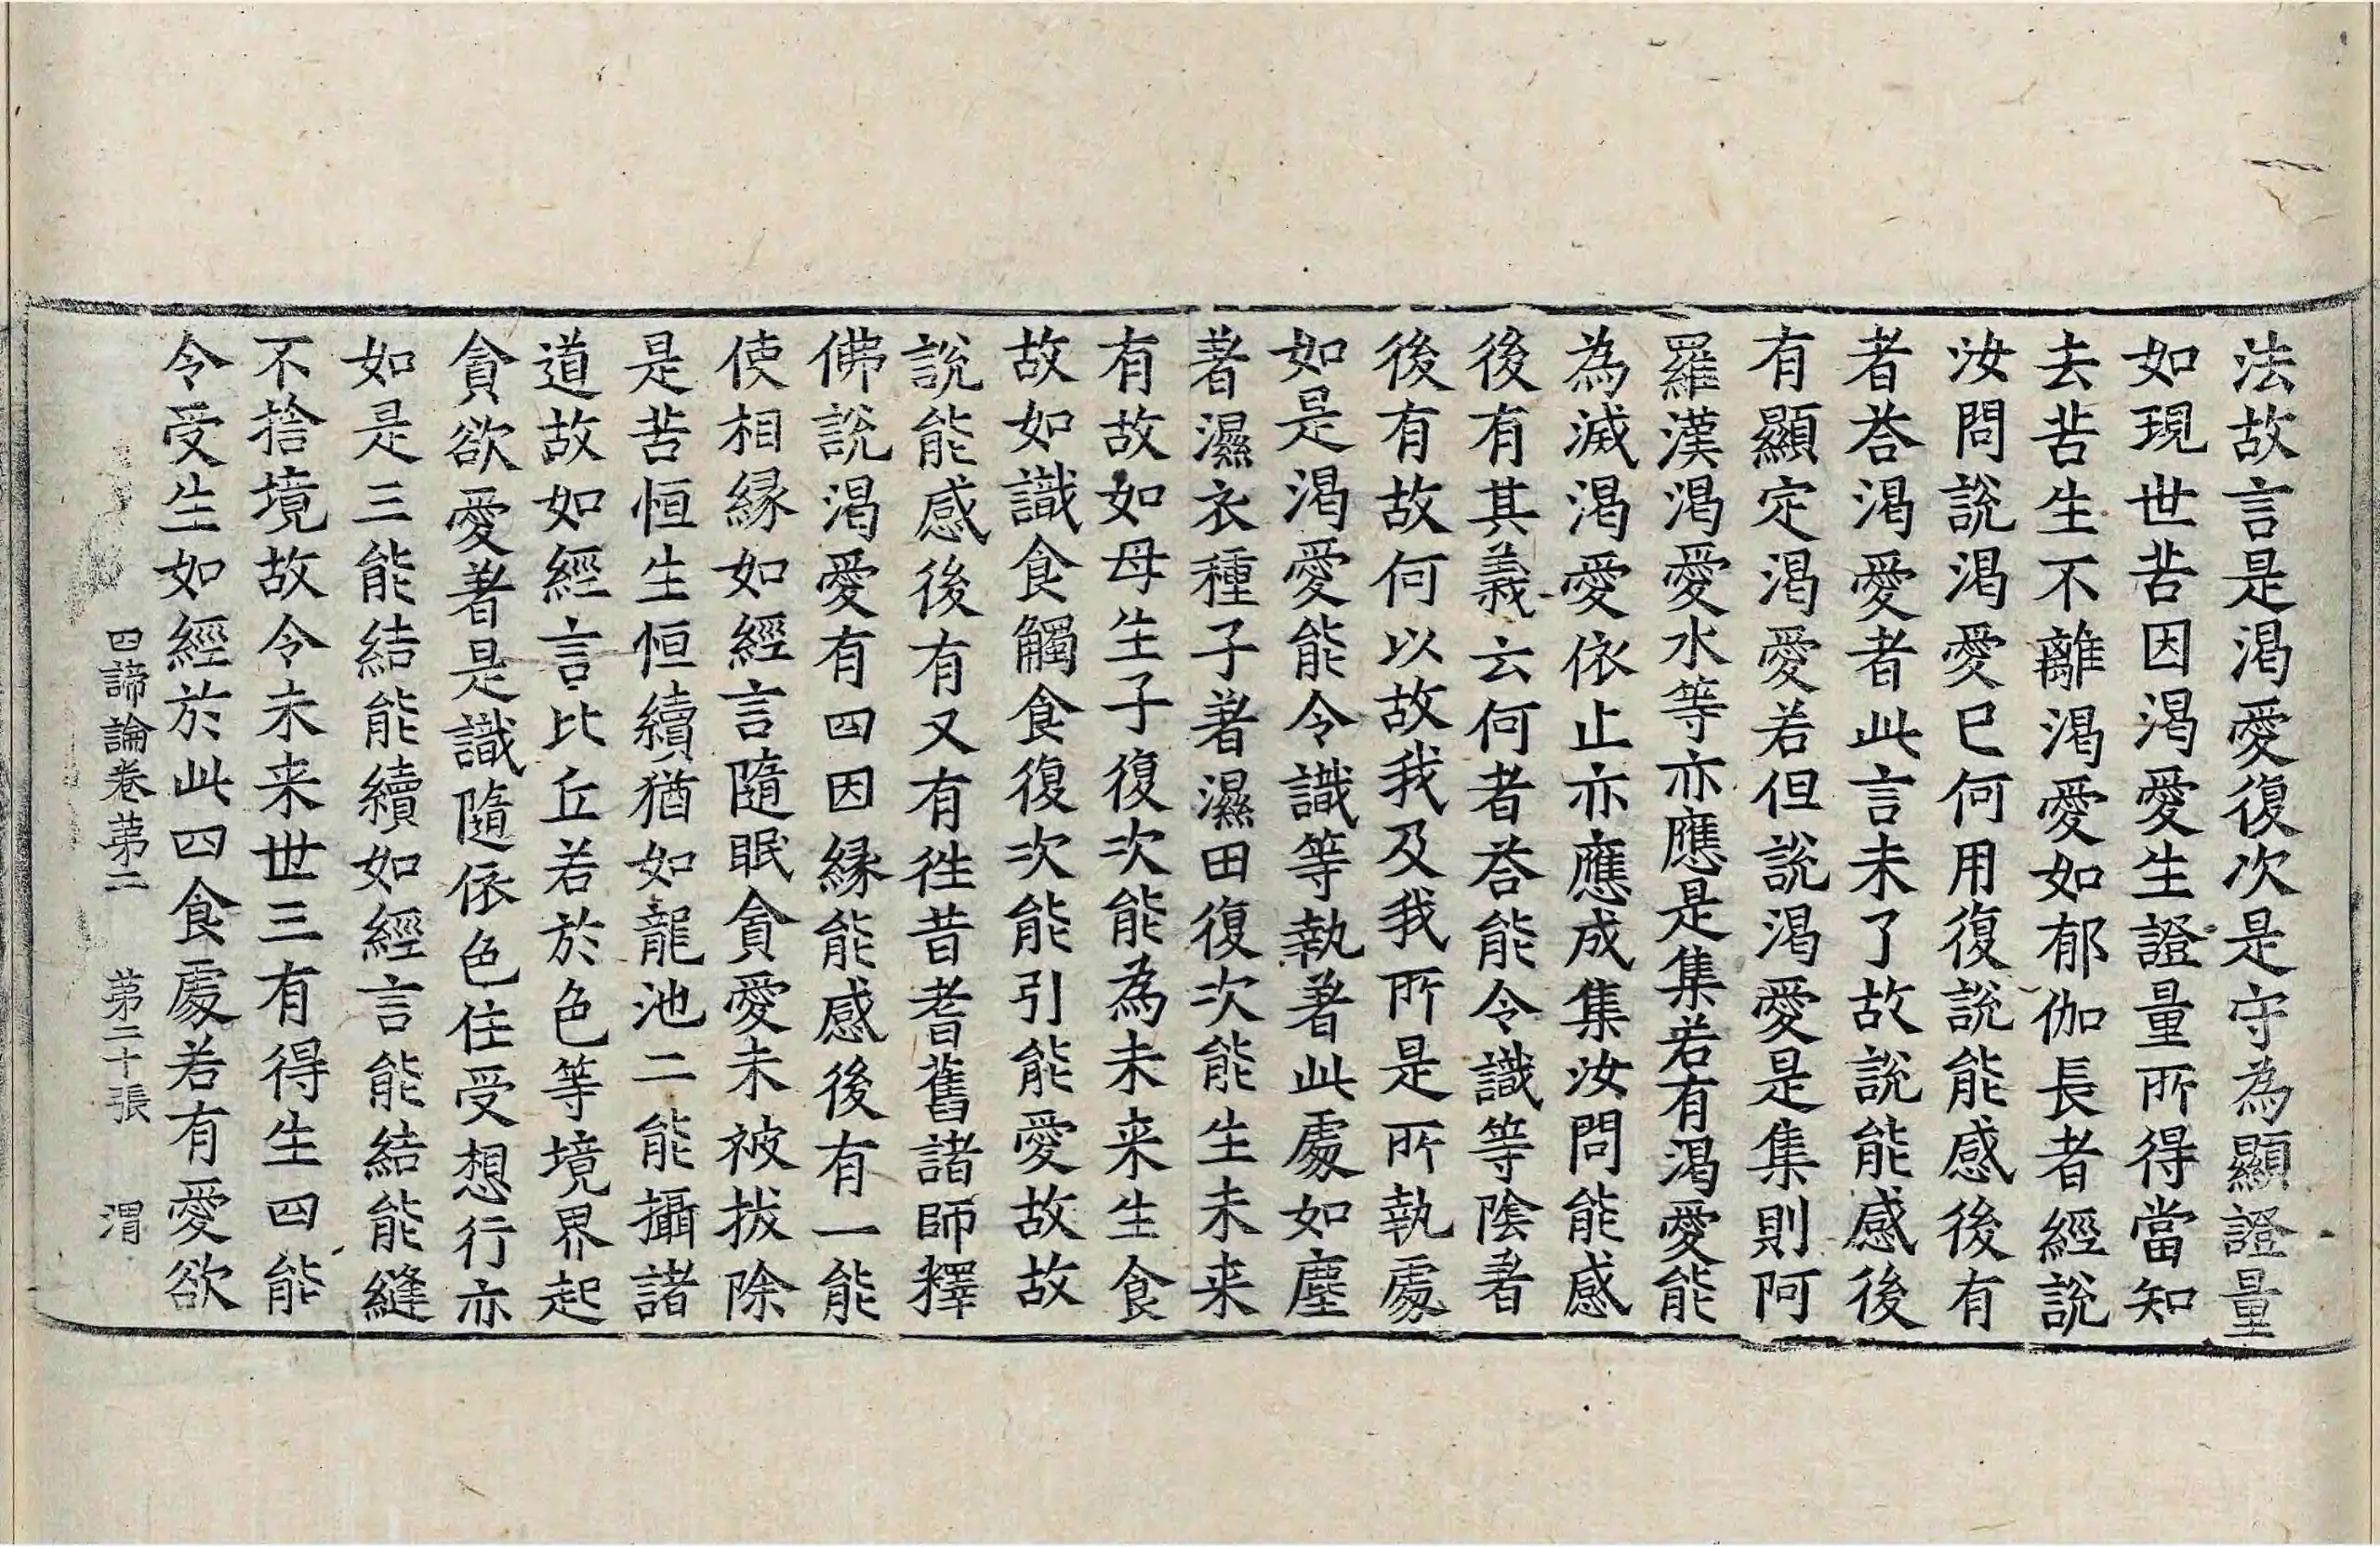 法故言是渴愛復次是守為顯證量
如現世苦因渴愛生證量所得當知
去苦生不離渴愛如郁伽長者經說
汝問說渴愛已何用復說能感後有
者荅渴愛者此言未了故說能感後
有顯定渴愛若但說渴愛是集則阿
羅漢渴愛水等亦應是集若有渴愛能
為滅渴愛依止亦應成集汝問能感
後有其義云何者荅能令識等陰著
後有故何以故我及我所是所執處
如是渴愛能令識等執著此處如塵
著濕衣種子著濕田復次能生未来
有故如母生子復次能為未来生食
故如識食觸食復次能引能愛故故
說能感後有又有徃昔耆舊諸師釋
佛說渴愛有四因緣能感後有一能
使相緣如經言隨眠貪愛未被拔除
是苦恒生恒續猶如龍池二能攝諸
道故如經言比丘若於色等境界起
貪欲愛著是識隨依色住受想行亦
如是三能結能續如經言能結能縫
不捨境故令未来世三有得生四能
令受生如經於此四食處若有愛欲
四諦論卷苐二 苐二十張 渭